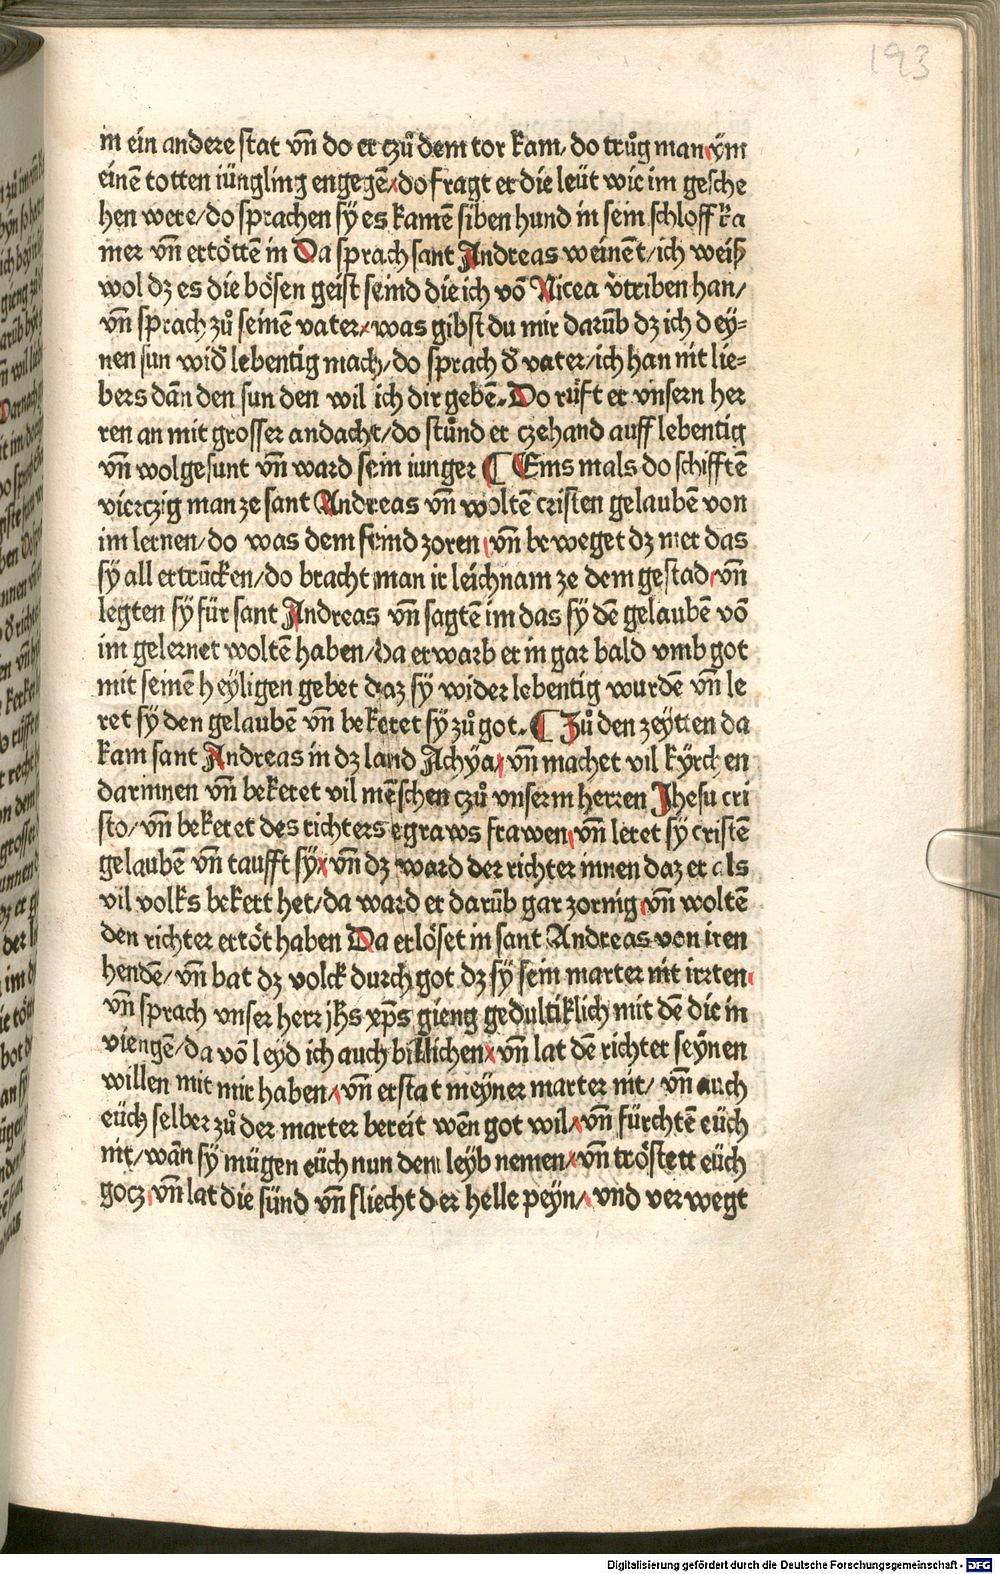 193
in ein andere stat vñ do er czů dem tor kam/ do trůg man ym
einē totten iüngling engegē/ do fragt er die leüt wie im gesche
hen were/ do sprachen sÿ es kamē siben hund in sein schloff ka
mer vñ ertöttē in Da sprach sant Andreas weinēt/ ich weiß
wol dz es die bösen geist seind die ich vō Nicea v̄triben han/
vñ sprach zů seinē vater/ was gibst du mir darūb dz ich dey⸗
nen sun wid̄ lebentig mach/ do sprach d̄ vater/ ich han nit lie⸗
bers dān den sun den wil ich dir gebē. Do rüft er vnsern her
ren an mit grosser andacht/ do stůnd er czehand auff lebentig
vñ wolgesunt vñ ward sein iunger ¶ Eins mals do schifftē
vierczig man ze sant Andreas vñ woltē cristen gelauben von
im lernen/ do was dem feind zoren/ vñ beweget dz mer das
sÿ all ertrūcken/ do bracht man ir leichnam ze dem gestad/ vñ
legten sÿ für sant Andreas vñ sagtē im das sÿ dē gelaubē vō
im gelernet woltē haben/ da erwarb er in gar bald vmb got
mit seinē heÿligen gebet daz sÿ wider lebentig wurdē vñ le
ret sÿ den gelaubē vñ bekeret sÿ zů got. ¶ Zů den zeÿtten da
kam sant Andreas in dz land Achÿa/ vñ machet vil kÿrchen
darinnen vñ bekeret vil mēschen czů vnserm herren Jhesu cri
sto/ vñ bekeret des richters egraws frawen/ vñ leret sÿ cristē
gelaubē vñ taufft sÿ/ vñ dz ward der richter innen daz er als
vil volks bekert het/ da ward er darūb gar zornig/ vñ woltē
den richter ertöt haben Da erlöset in sant Andreas von iren
hendē/ vñ bat dz volck durch got dz sÿ sein marter nit irrten
vñ sprach vnser herr jhs xp̄s gieng gedultiklich mit dē die in
viengē/ da vō leÿd ich auch billichen/ vñ lat dē richter seÿnen
willen mit mir haben/ vñ erstat meÿner marter nit/ vñ auch
eüch selber zů der marter bereit wēn got wil/ vñ fürchtē eüch
nit/ wān sÿ mügen eüch nun den leÿb nemen/ vñ tröstett eüch
gocz/ vñ lat die sünd vñ fliecht der helle peÿn/ vnd verwegt
Digitalisierung gefördert durch die Deutsche Forschungsgemeinschaft - DFG